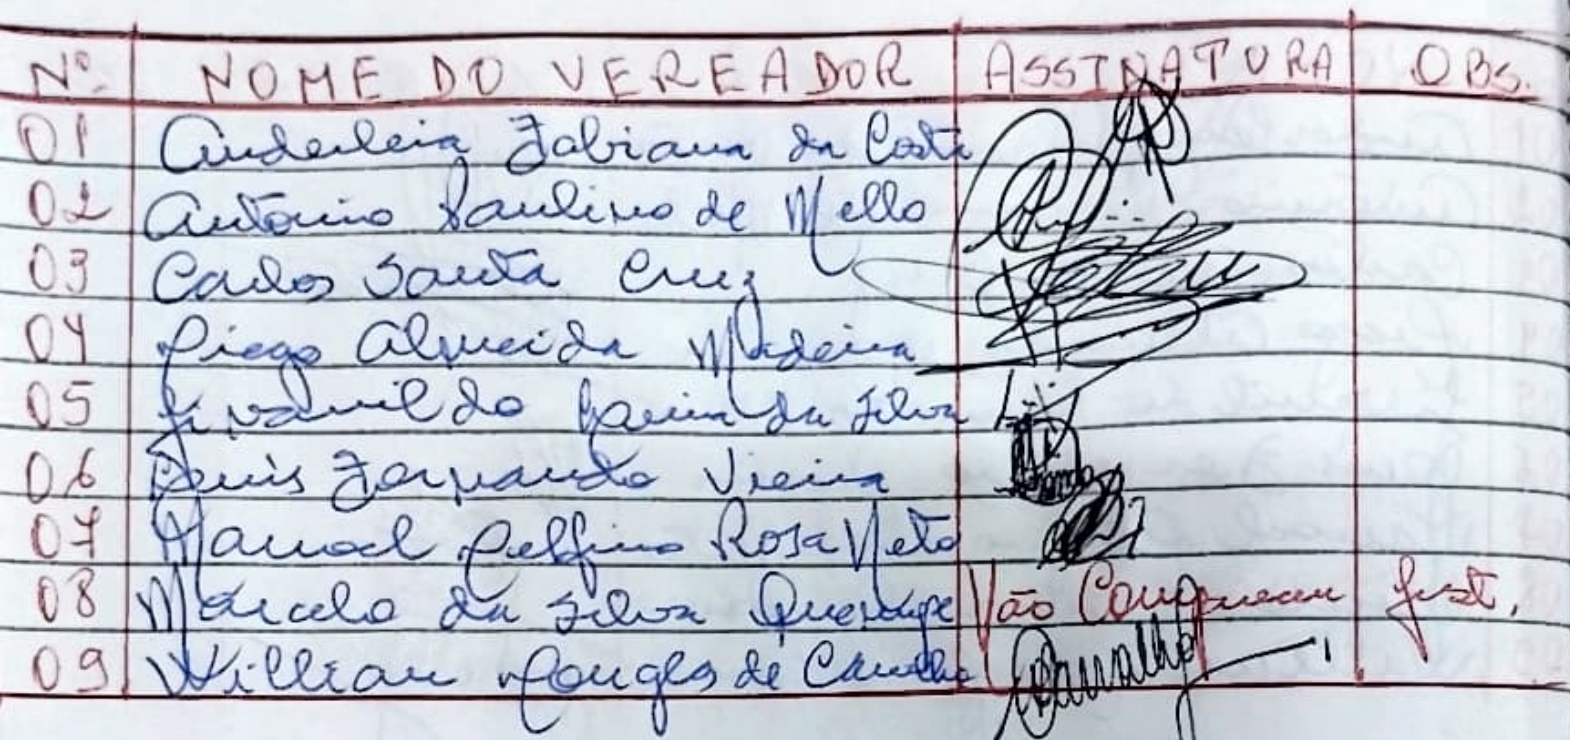 Nº NOME DO VEREADOR ASSINATURA OBS.
01 Anderleia Fabiana da Costa
02 Antonio Paulino de Mello
03 Carlos Santa Cruz
04 Diego Almeida Madeira
05 da Silva
06 Denis Fernando Vieira
07 Manoel Delfino Rosa Neto
08 Marcelo da Silva Não Compareceu Just.
09 Willian Douglas de Carvalho Carvalho